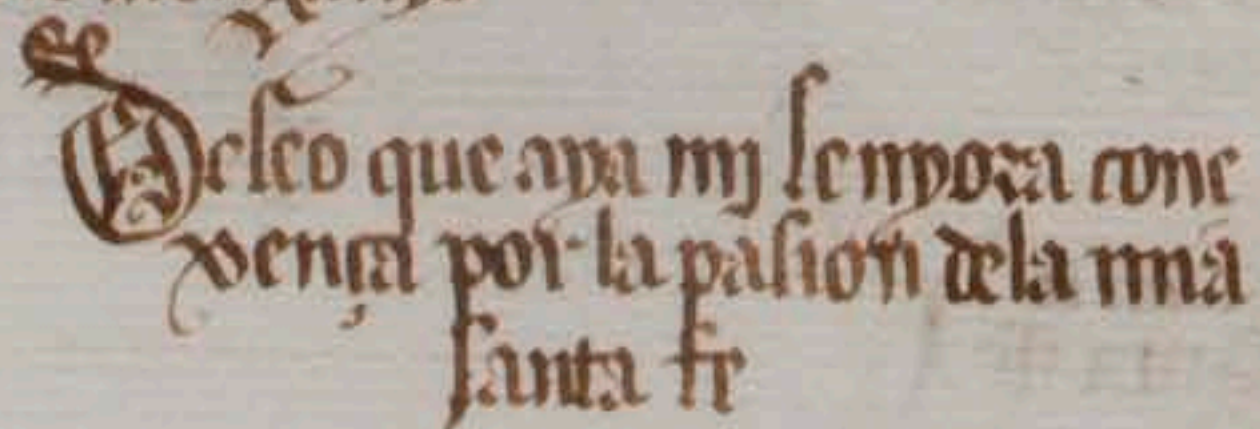 Deseo que aya mj senyora cone
xença por la pasion dela mia
santa fe